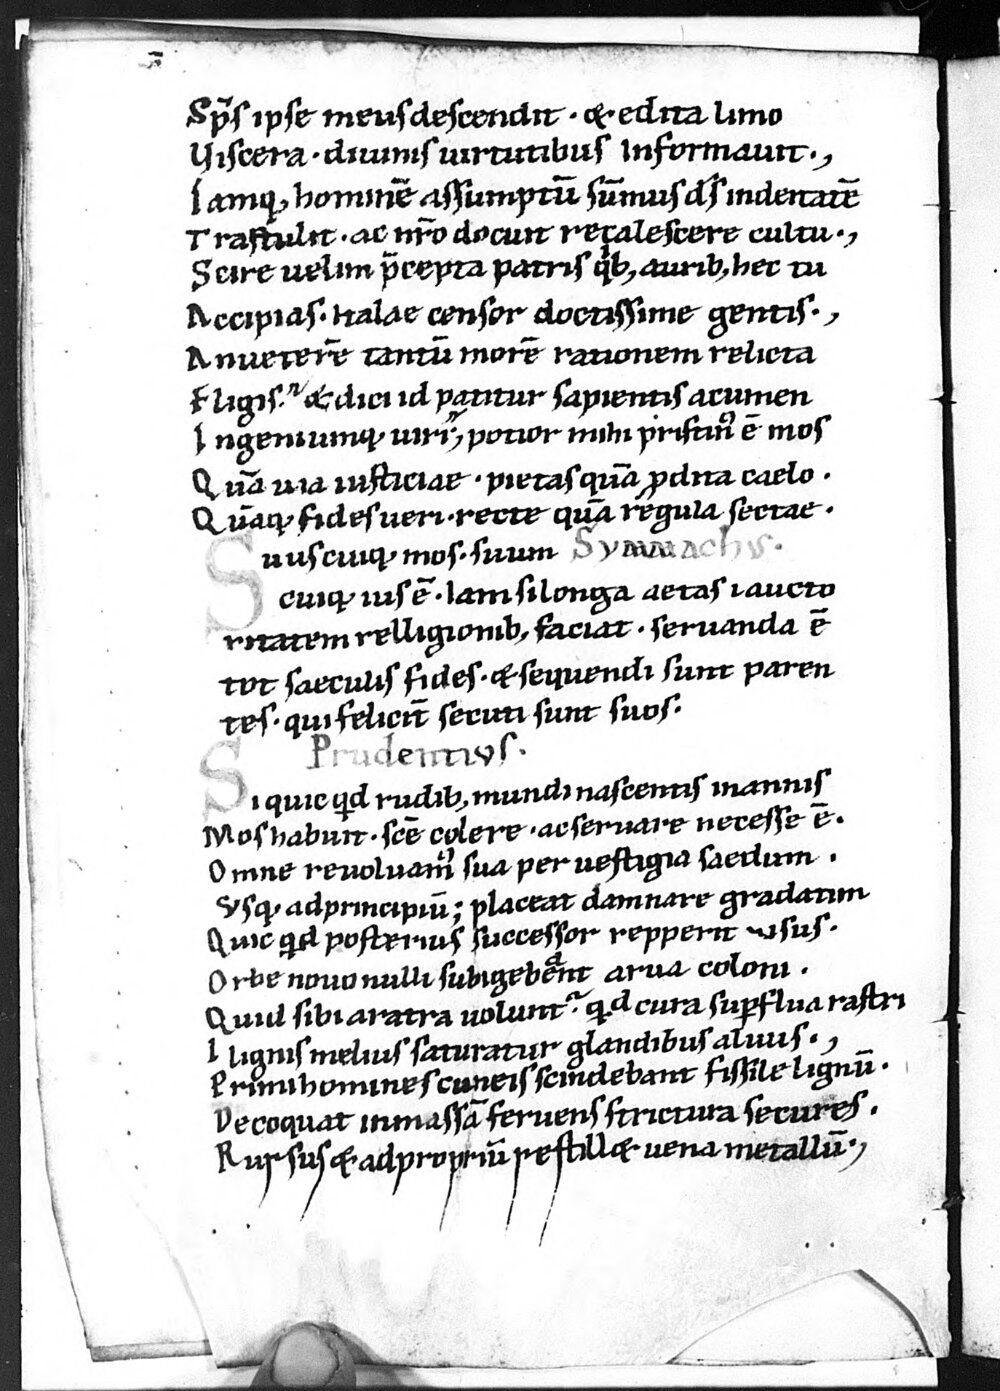 Sp̄s ipse meus descendit · & edita limo
Viscera · diuinis uirtutibus informauit .,
Iamq; hominē assumptū sūmus d̄s indeitatē
Trastulit · ac nr̄o docuit recalescere cultu .,
Scire uelim p̄cepta patris qb; aurib; hec tu
Accipias · Italae censor doctissime gentis .,
An ueterē tantū morē rationem relicta
Eligis · & dici id patitur sapientis acumen
Ingeniumq; uiri, potior mihi pristin' ē mos
Quā uia iusticiae · pietas quā ꝓdita caelo ·
Quāq; fides ueri · recte quā regula sectae ·
Suus cuiq; mos · suum Symmachus ·
cuiq; ius ē · Iam si longa aetas aucto
ritatem relligionib; faciat · seruanda ē
tot saeculis fides · & sequendi sunt paren
tes · qui felicit̄ secuti sunt suos :
Prudentius ·
Si quicqd rudib; mundi nascentis in annis
Mos habuit · scē colere · ac seruare necesse ē ·
Omne reuoluam' sua per uestigia saeclum ·
Vsq; ad principiū ; placeat damnare gradatim
Quicqd posterius successor repperit usus ·
Orbe nouo nulli subigebant arua coloni ·
Quid sibi aratra uolunt · qd cura supflua rastri
Ilignis melius saturatur glandibus aluus .,
Primi homines cuneis scindebant fissile lignū ·
Decoquat in massā feruens strictura secures ·
Rursus & ad propriū restill& uena metallū .,